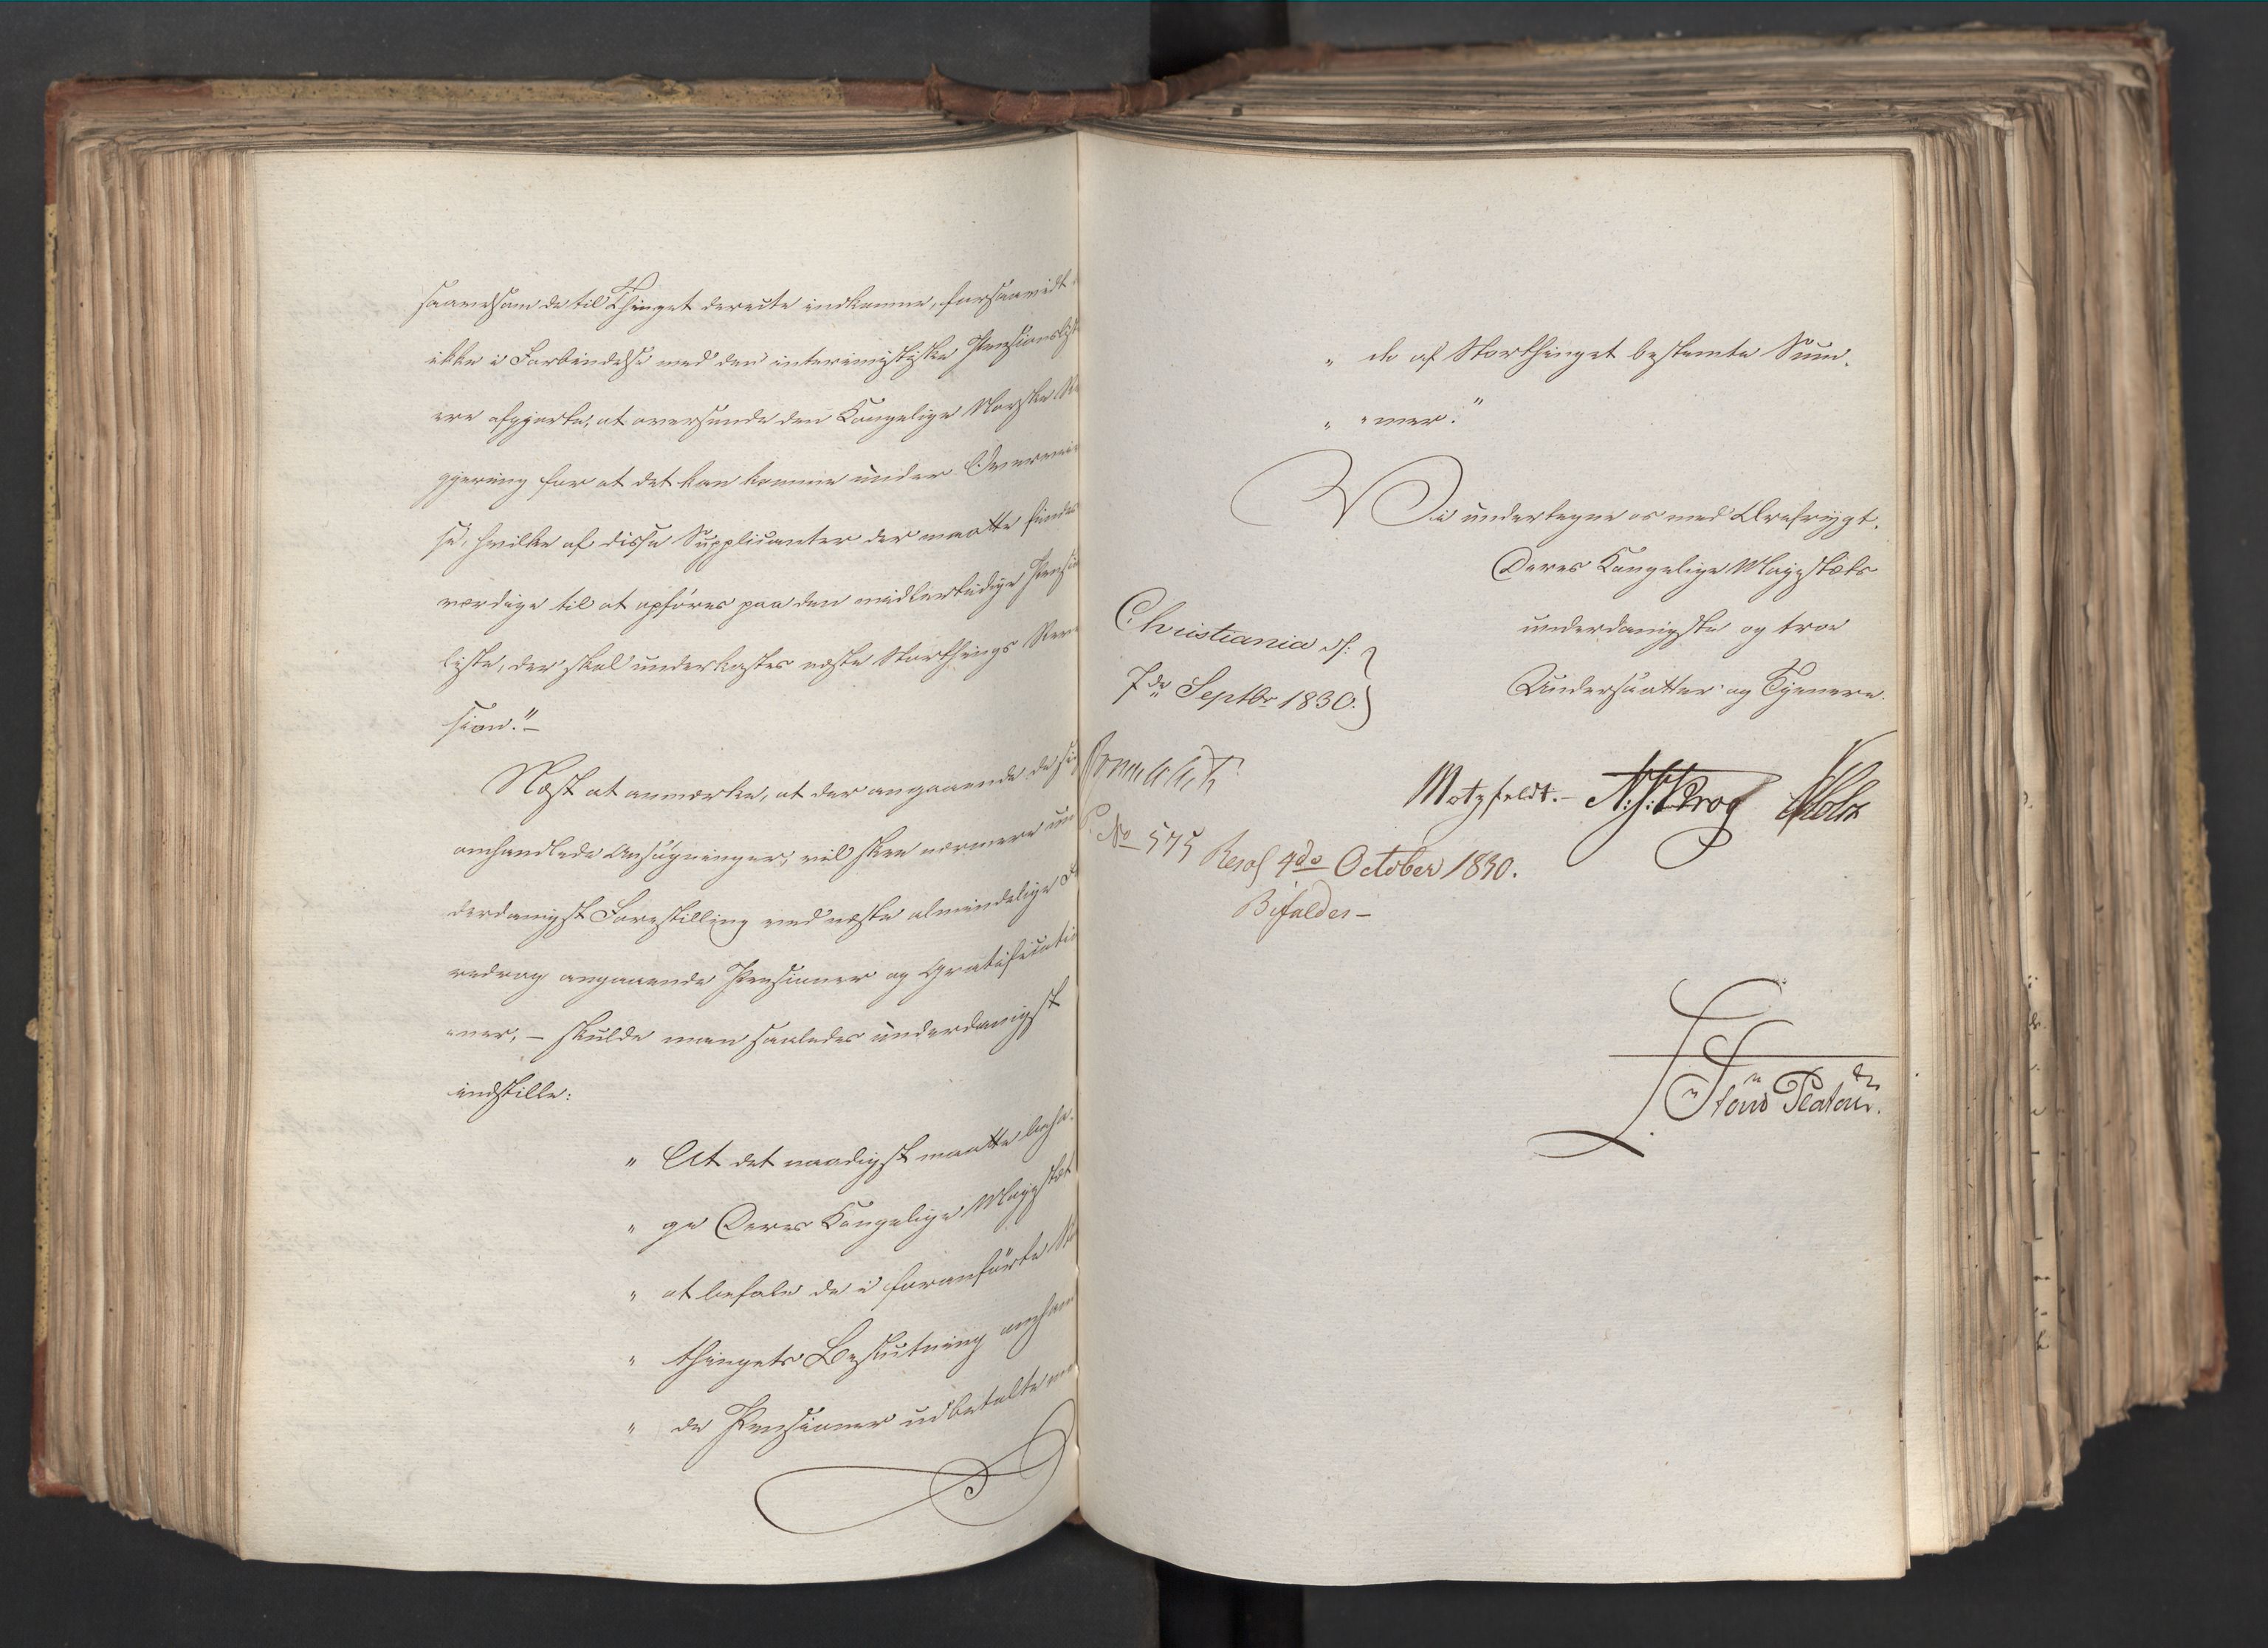 saavelsom de til Thinget derecte indkomme, forsaavidt
ikke i Forbindelse med den interimistiske Pensionslist
ere afgjorte, at oversende den Kongelige Norske Re
gjering for at det kan komme under Overvei
se, hvilke af disse Supplicanter der maatte findes
værdige til at opføres paa den midlertidige Pensio
liste, der skal underkastes næste Storthings Revi
sion."—
Næst at anmærke, at der angaaende de sid
omhandlede Ansøgninger, vil skee nærmere un
derdanigst Forestilling ved næste almindelige F
redrag angaaende Pensioner og Gratificatio
ner, — skulde man saaledes underdanigst
indstille:
" At det naadigst maatte beha-
" ge Deres Kongelige Majestæt
" at befale de i foranførte Sto
" thingets Beslutning omhan
" de Pensioner udbetalte me
" de af Storthinget bestemte Sum-
" mer."
Vi undertegne os med Ærefrygt,
Deres Kongelige Majestæts
underdanigste og troe
Undersaatter og Tjenere.
Christiania d:
7de Septbr 1830.
Motzfeldt.— Krog Holst
No 575 Resol 4de October 1830.
Bifaldes—